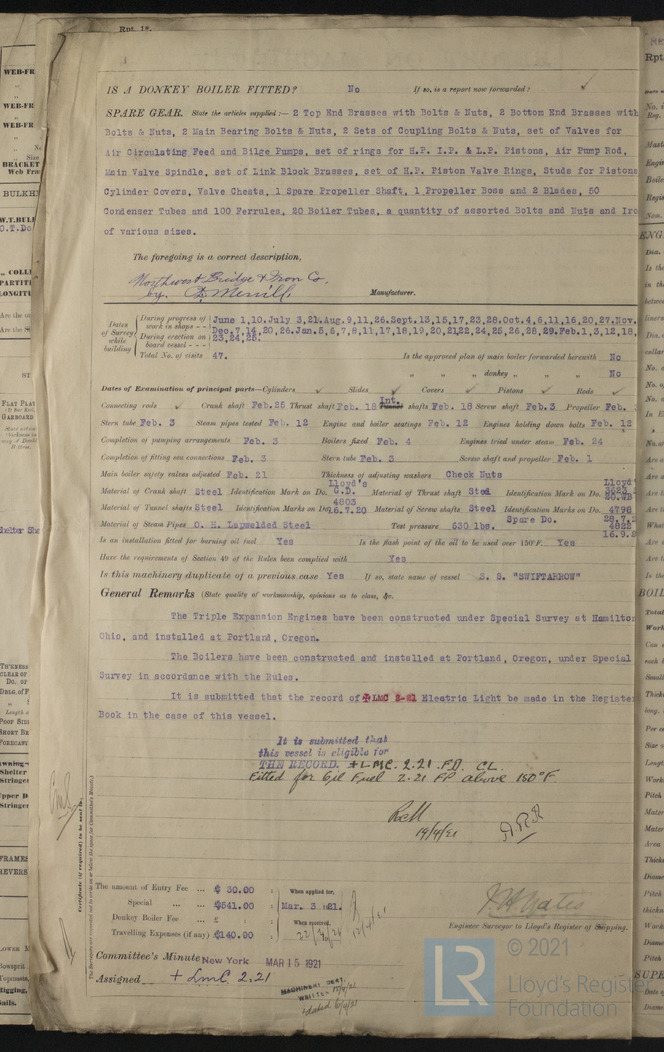 Rpt. 1*.
IS A DONKEY BOILER FITTED? No If so, is a report now forwarded?
SPARE GEAR. State the articles supplied :— 2 Top End Brasses with Bolts & Nuts, 2 Bottom End Brasses with
Bolts & Nuts, 2 Main Bearing Bolts & Nuts, 2 Sets of Coupling Bolts & Nuts, set of Valves for
Air Circulating Feed and Bilge Pumps, set of rings for H.P. I.P. & L.P. Pistons, Air Pump Rod,
Main Valve Spindle, set of Link Block Brasses, set of H.P. Piston Valve Rings, Studs for Pistons
Cylinder Covers, Valve Chests, 1 Spare Propeller Shaft, 1 Propeller Boss and 2 Blades, 50
Condenser Tubes and 100 Ferrules, 20 Boiler Tubes, a quantity of assorted Bolts and Nuts and Iro
of various sizes.
The foregoing is a correct description,
Northwest Bridge & Iron Co,
by. Merrill, Manufacturer.
Dates of Survey while building
During progress of work in shops - - June 1,10. July 3,21. Aug.9,11,26. Sept.13,15,17,23,28. Oct.4,6,11,16,20,27. Nov.
During erection on board vessel - - - Dec,7,14,20,26. Jan.5,6,7,8,11,17,18,19,20,21,22,24,25,26,28,29. Feb.1,3,12,18,
23,24,25.
Total No. of visits 47. Is the approved plan of main boiler forwarded herewith No
" " " donkey " " " No
Dates of Examination of principal parts—Cylinders Slides Covers Pistons Rods
Connecting rods Crank shaft Feb.25 Thrust shaft Feb. 18 Int. shafts Feb. 18 Screw shaft Feb.3 Propeller Feb.
Stern tube Feb. 3 Steam pipes tested Feb. 12 Engine and boiler seatings Feb. 12 Engines holding down bolts Feb. 12
Completion of pumping arrangements Feb. 3 Boilers fixed Feb. 4 Engines tried under steam Feb. 24
Completion of fitting sea connections Feb. 3 Stern tube Feb. 3 Screw shaft and propeller Feb. 1
Main boiler safety valves adjusted Feb. 21 Thickness of adjusting washers Check Nuts
Material of Crank shaft Steel Identification Mark on Do. Lloyd's G.D. Material of Thrust shaft Steel Identification Mark on Do. Lloyd'
Material of Tunnel shafts Steel Identification Marks on Do. 4803 16.7.20 Material of Screw shafts Steel Identification Marks on Do. 4798
Spare Do. 4822
16.9.2
Material of Steam Pipes O. H. Lapwelded Steel Test pressure 630 lbs.
Is an installation fitted for burning oil fuel Yes Is the flash point of the oil to be used over 150°F. Yes
Have the requirements of Section 49 of the Rules been complied with Yes
Is this machinery duplicate of a previous case Yes If so, state name of vessel S. S. "SWIFTARROW"
General Remarks (State quality of workmanship, opinions as to class, &c.
The Triple Expansion Engines have been constructed under Special Survey at Hamilton
Ohio, and installed at Portland, Oregon.
The Boilers have been constructed and installed at Portland, Oregon, under Special
Survey in accordance with the Rules.
It is submitted that the record of +LMC 2-21 Electric Light be made in the Register
Book in the case of this vessel.
It is submitted that
this vessel is eligible for
THE RECORD. +LMC. 2.21. F.D. CL.
Fitted for Oil Fuel 2.21 FP above 150°F
19/4/21
The amount of Entry Fee ... $ 30.00 When applied for,
Special ... $541.00 Mar. 3 1921.
Donkey Boiler Fee ... £ When received,
Travelling Expenses (if any) $140.90
Engineer Surveyor to Lloyd's Register of Shipping.
Committee's Minute New York MAR 15 1921
Assigned + LMC 2.21
MACHINERY DEPT.
WRITTEN
Certificate (if required) to be sent to
© 2021
Lloyd's Register
Foundation
LR